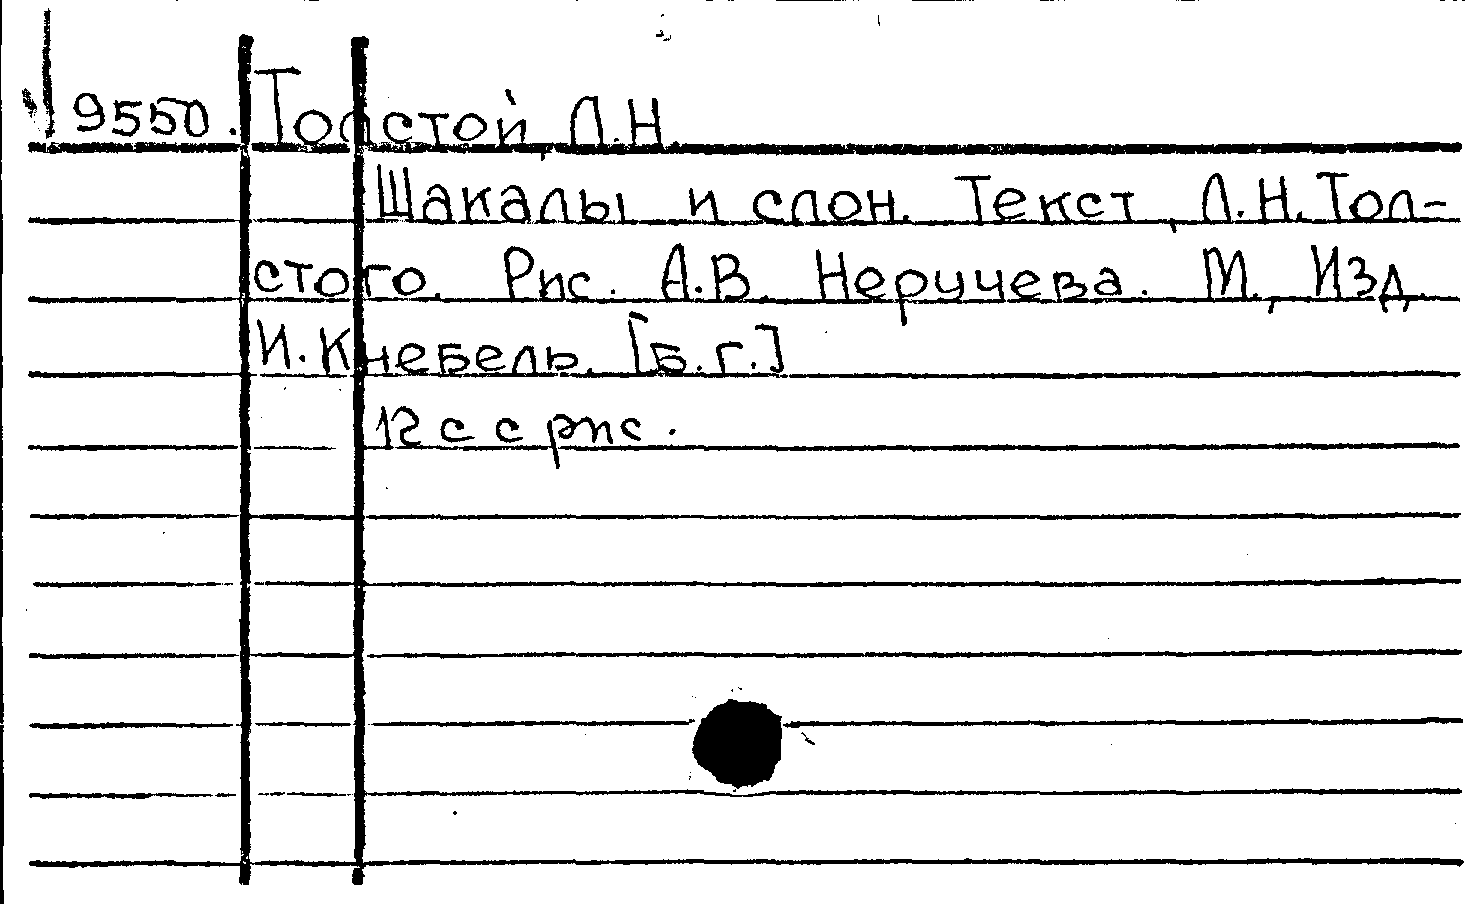 9550. Толстой, Л.Н.
Шакалы и слон. Текст, Л.Н. Тол-
стого. Рис. А.В. Неручева. М., Изд.
И. Кнебель. [Б.г.]
12 с с рис.